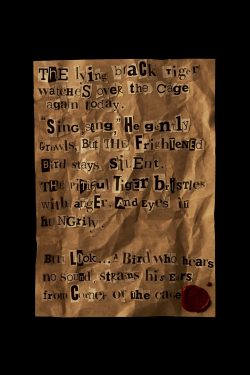 The lying black tiger
watches over the cage
again today.
"Sing, sing," He gently
Growls, But THE Frightened
Bird stays SILENT.
THE Pitiful Tiger bristles
with anger, And Eyes it
huNgrily.
But Look... A Bird who hears
no sound, strains his Ears
from Corner of the cage